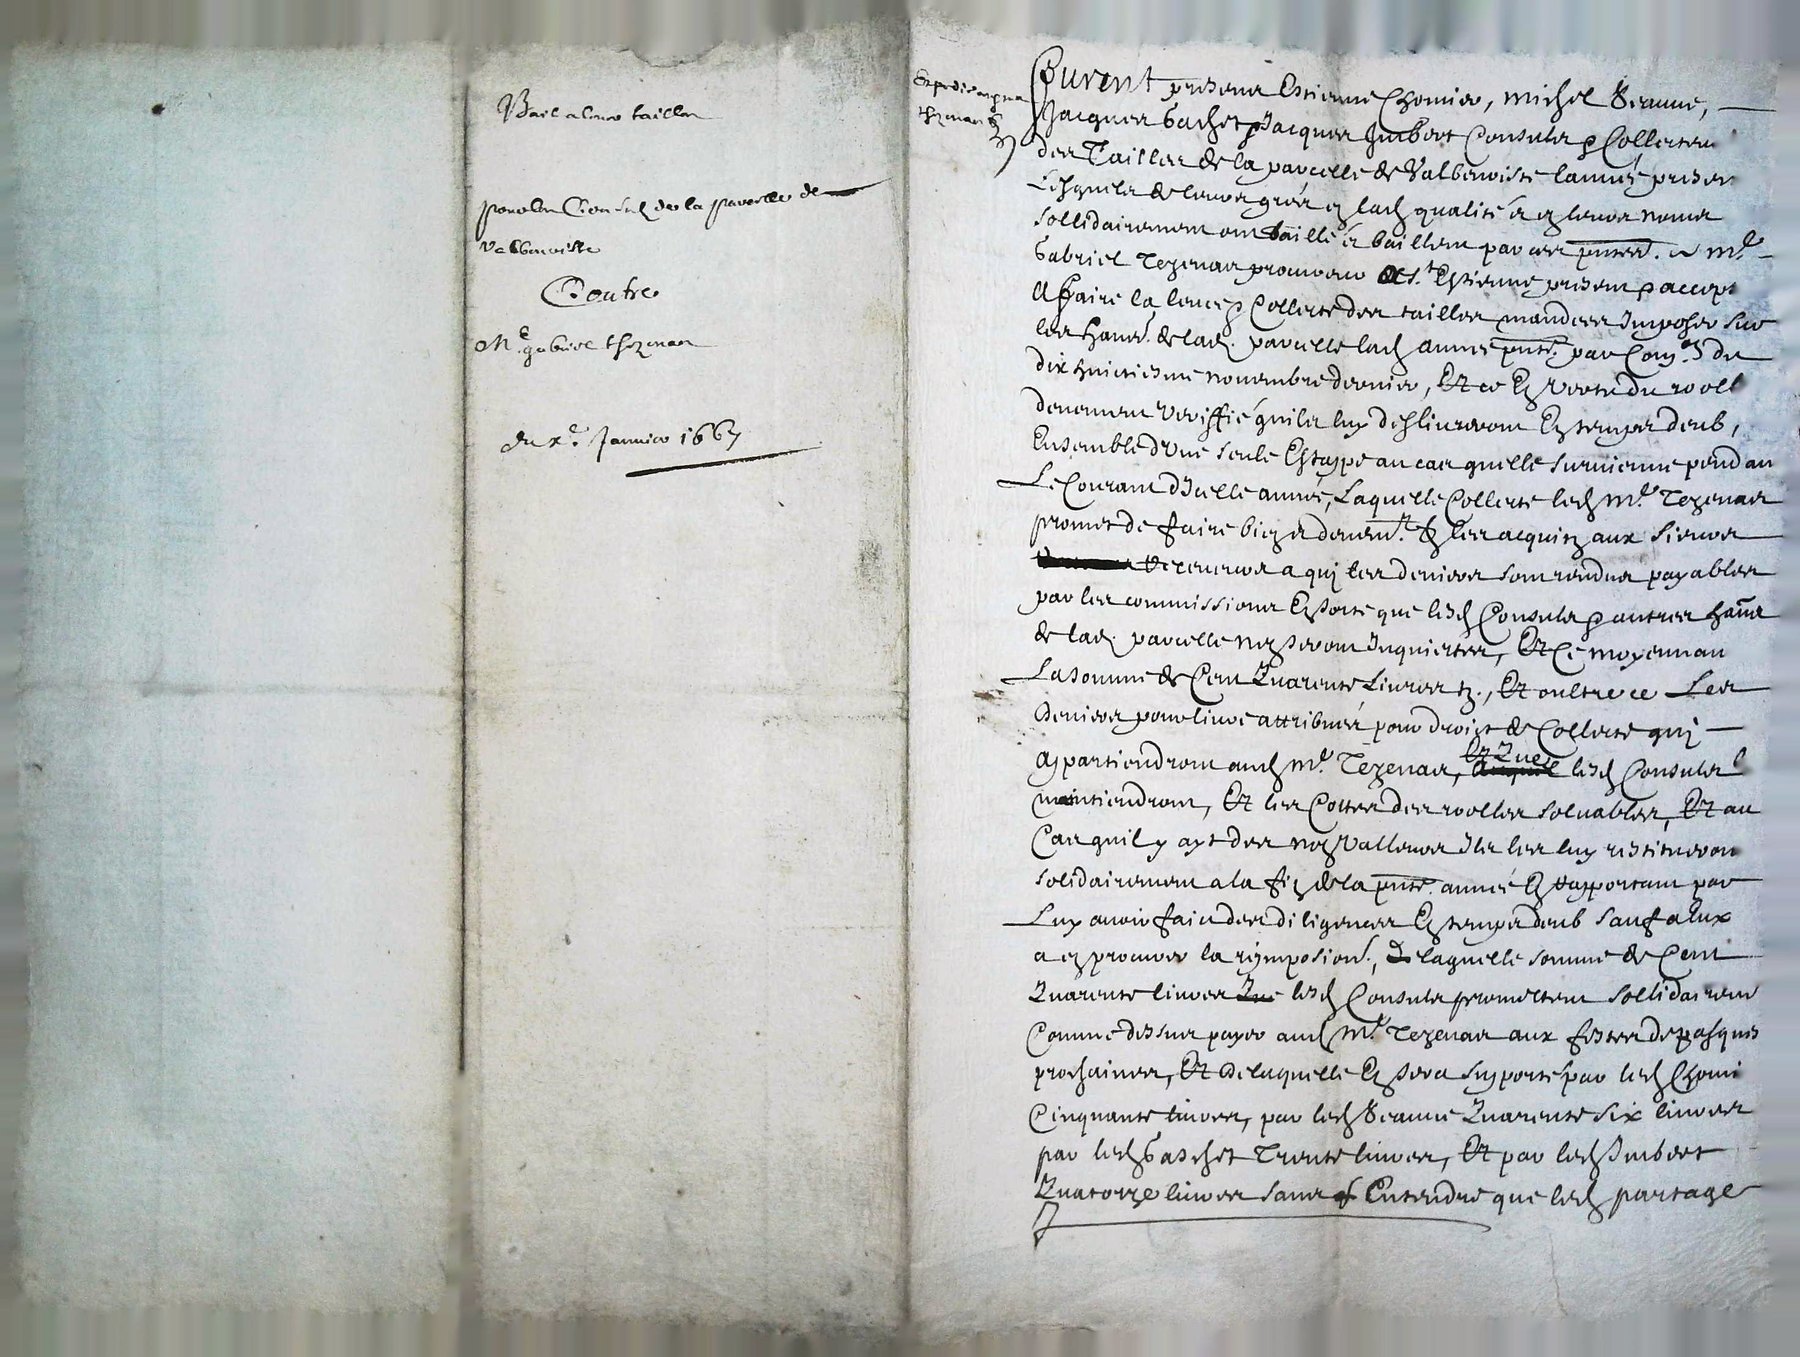 Bail a lever tailles
pour les Consulz de la parcelle de
valbenoiste
Contre
Me. gabriel thezenas
du xe. Janvier 1667
Expedié aud
thezenas
Furent presens Estienne Chomier, Michel Jeanne,
Jacques Gachet & Jacques Imbert Consuls & Collecteurs
des Tailles de la parcelle de Valbenoiste lannée presen
Lesquels de leurs grés en lad. qualité et en leurs noms
sollidairement ont baillé et baillent par ces pntes. a Me.
Gabriel Tezenas procureur a St. Estienne present & accept
a faire la levee & Collecte des tailles mandees Imposer sur
les hans. de lad. parcelle lad. annee pnte. par Comon. du
dix huictiesme novembre dernier, Et ce En vertu du rooll
deuement veriffié quils luy deslivreront En temps deub,
Ensemble d'Une seule Estappe au cas quelle survienne pendan
Le Courant d'Icelle année, Laquelle Collecte led. Me. Tezenas
promet de faire bien et deuemt. & les acquitz aux Sieurs
Receveurs a qui les deniers sont rendus payables
par les commissions En sorte que lesd. Consuls & autres hans
de lad. parcelle nen seront Inquiettes, Et Ce moyennan
La somme de Cent Quarente Livres tz., Et oultre ce Les
deniers pour livre attribués pour droict de Collecte qui
appartiendront aud. Me. Tezenas, Et Que lesd. Consuls
maintiendront, Et les Cottes des roolles solvables, Et au
Cas quil y ayt des non Valleurs Ils les luy restitueron
solidairement a la fin de la pnte. année En rapportant par
Luy avoir faict des diligences En temps deub sauf a Eux
a en procurer la reimposion., De laquelle somme de Cent
Quarente livres lesd. Consuls promettent sollidairem
Comme dessus payer aud. Me. Tezenas aux festes de pasques
prochaines, Et De laquelle En sera supporté par led. Chomi
Cinquante livres, par led. Jeanne Quarente six livres
par led. Gachet Trente livres, Et par led. Imbert
Quatorze livres sans Entendre que led. partage